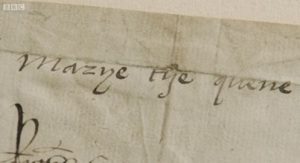 BBC
Marye the quene